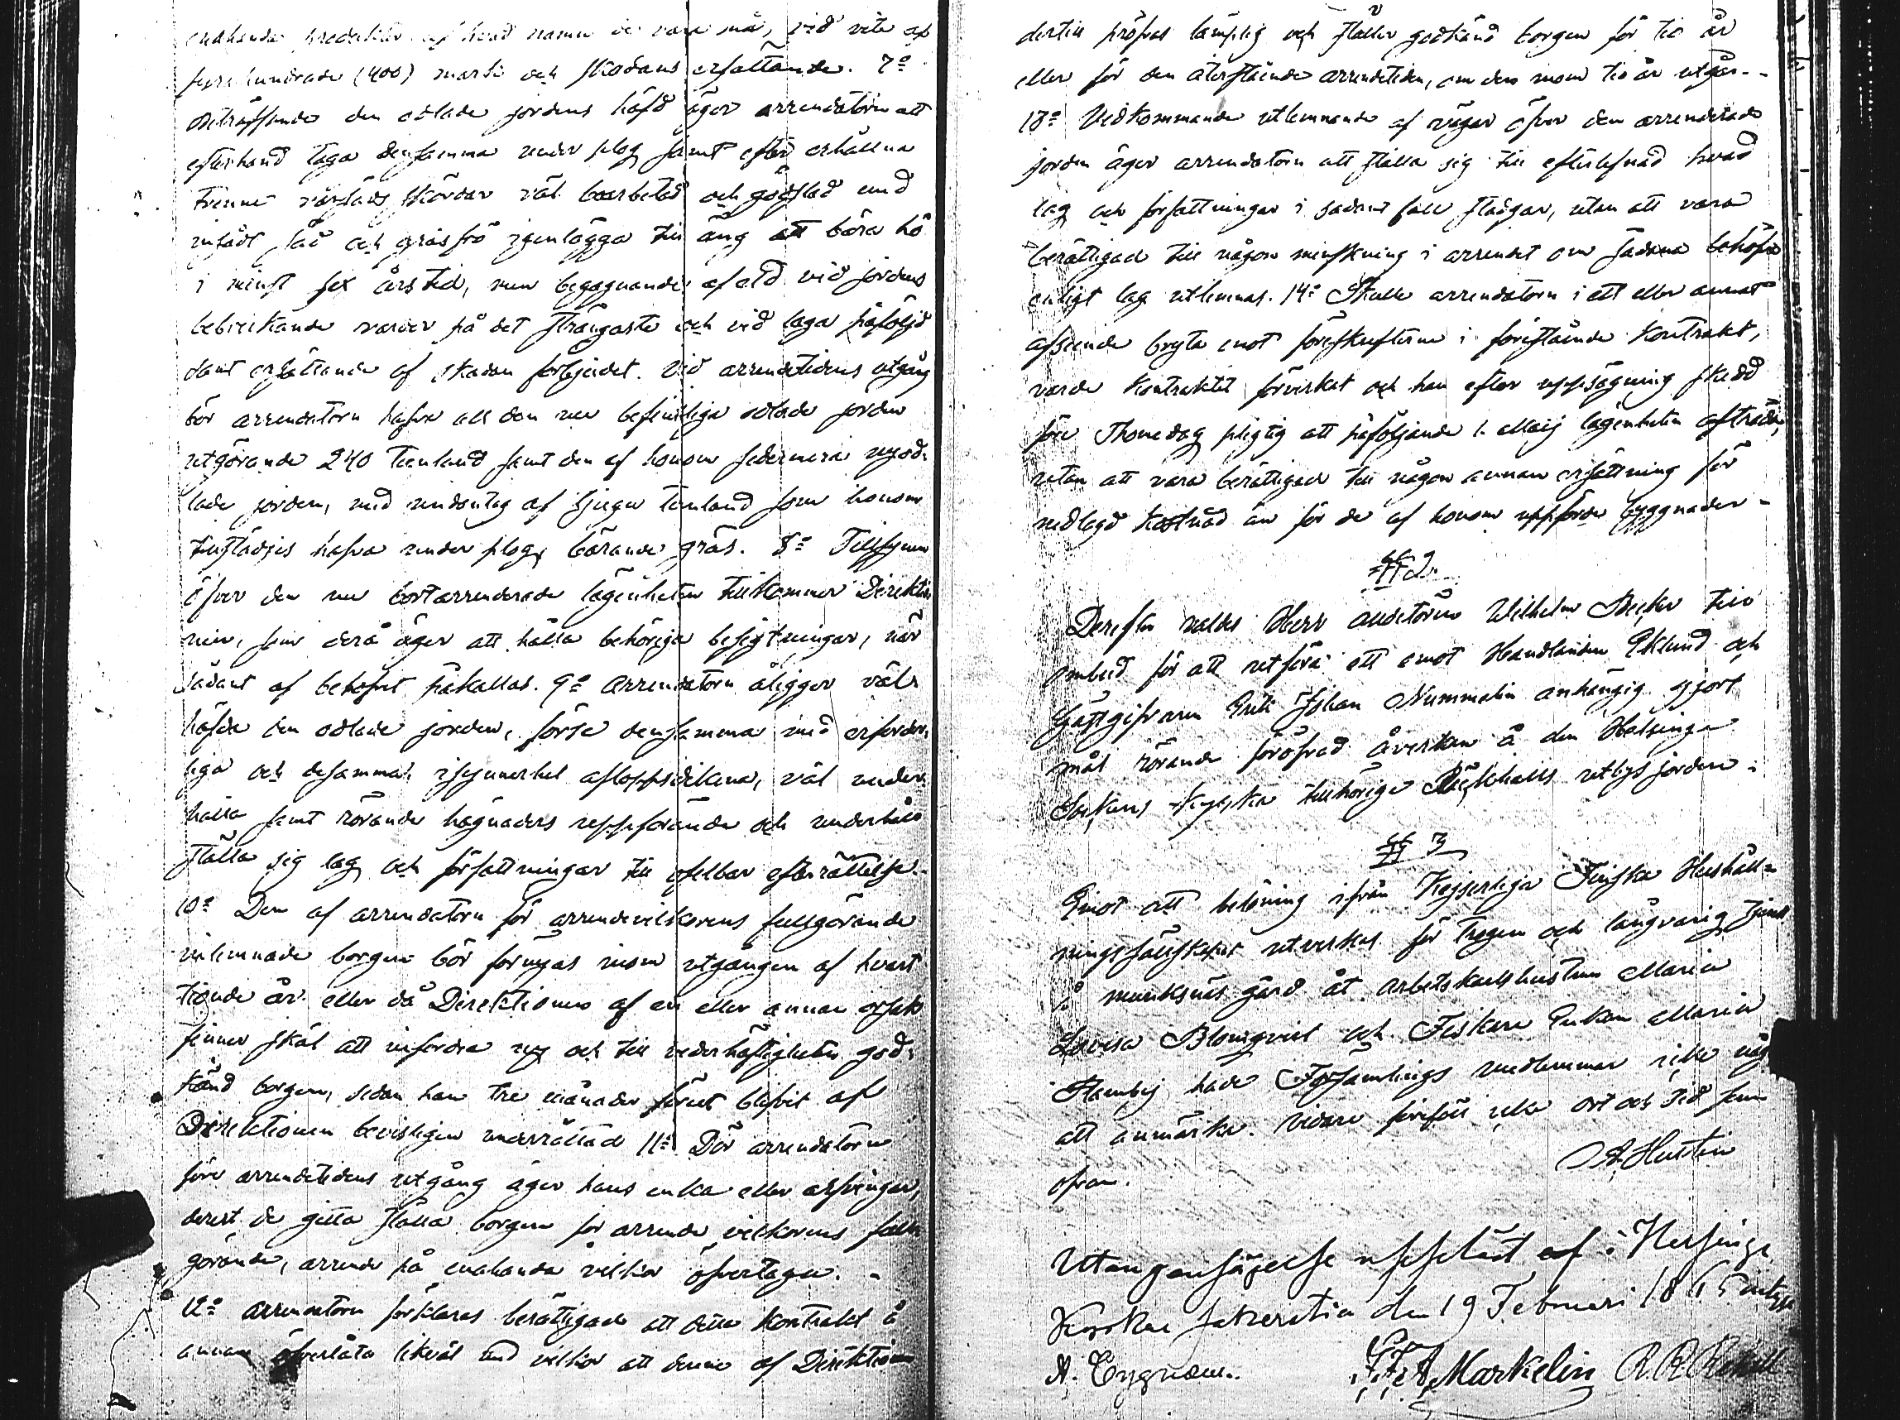 enahanda predikter af hvad namn de vara må, vid vite af
fyrahundrade (400) mark och skadans ersättande. 7o
Beträffande den odlade jordens häfd äger arrendatorn att
efterhand taga densamma under plog samt efter erhållna
trenne skördar väl bearbetad och gödslad med
insådt gräsfrö igenlägga till äng att bära hö
i minst sex års tid, men begagnande af eld vid jordens
varder på det strängaste och vid laga påföljd
samt ersättande af skadan förbjudet. Vid arrendetidens utgång
bör arrendatorn hafva all den nu befintliga odlade jorden
utgörande 240 Tunland samt den af honom sedermera upod-
lade jorden, med undantag af tjugu tunland som honom
tillstädjes hafva under plog, bärande gräs. 8o Tillsynen
öfver den nu bortarrenderade lägenheten tillkommer Direktio-
nen, som derå äger att hålla behöriga besigtningar, när
sådant af behofvet påkallas. 9o Arrendatorn åligger väl
häfda den odlade jorden, förse densamma med erforder-
liga och desamma, isynnerhet afloppsdikena, väl under-
hålla samt rörande hägnaders uppförande och underhåll
ställa sig lag och författningar till ofelbar efterrättelse.
10o Den af arrendatorn för arrendevilkorens fullgörande
inlemnade borgen bör förnyas inom utgången af hvart
tionde år eller då Direktionen af en eller annan orsak
finner skäl att infordra ny och till vederhäftigheten god-
känd borgen, sedan han tre månader förut blifvit af
Direktionen bevisligen underrättad 11o Dör arrendatorn
före arrendetidens utgång äger hans enka eller arfvingar,
derest de gitta ställa borgen för arrende vilkorens full-
görande, arrendet på enahanda vilkor öfvertaga. -
12o Arrendatorn förklaras berättigad att detta Kontrakt å
annan öfverlåta likväl med vilkor att denne af Direktionen
dertill pröfvas lämplig och ställer godkänd borgen för tio år
eller för den återstående arrendetiden, om den inom tio år utgår. -
13o Vidkommande utlemnande af vägar öfver den arrenderade
jorden äger arrendatorn att ställa sig till efterlefnad hvad
lag och författningar i sådant fall stadgar, utan att vara
berättigad till någon minskning i arrendet om sådana behöfva
enligt lag utlemnas. 14o Skulle arrendatorn i ett eller annat
afseende bryta emot föreskrifterna i förestående Kontrakt,
varde Kontraktet förverkat och han efter uppsägning skedd
före Thomedag pligtig att påföljande 1 Maij lägenheten afträda,
utan att vara berättigad till någon annan ersättning för
nedlagd kostnad än för de af honom uppförde byggnader -
§ 2.
Derefter valdes Herr Auditören Wilhelm till
ombud för att utföra ett emot Handlanden Eklund och
Gästgifvaren Erik Johan Nummelin anhängig gjort
mål rörande föröfvad åverkan å den Helsinge
Sockens Kyrka tillhöriga Bäckhalls utbysjorden.
§ 3
Emot att belöning ifrån Kejserliga Finska Hushåll-
ningssällskapet utverkas för trogen och långvarig tjenst
å Munksnäs gård åt Arbetskarlshustrun Maria
Lovisa Blomqvist och Fiskare Enkan Maria
Stenby hade Församlings medlemmar icke något
att anmärka. Vidare förefall icke ort och tid som
ofvan. A. Huttin
Utan gensägelse uppläst af i Helsinge
Kyrkas sakerstia den 19 Februari 1865 intyga
A. F. F. A. Markelin R. R.